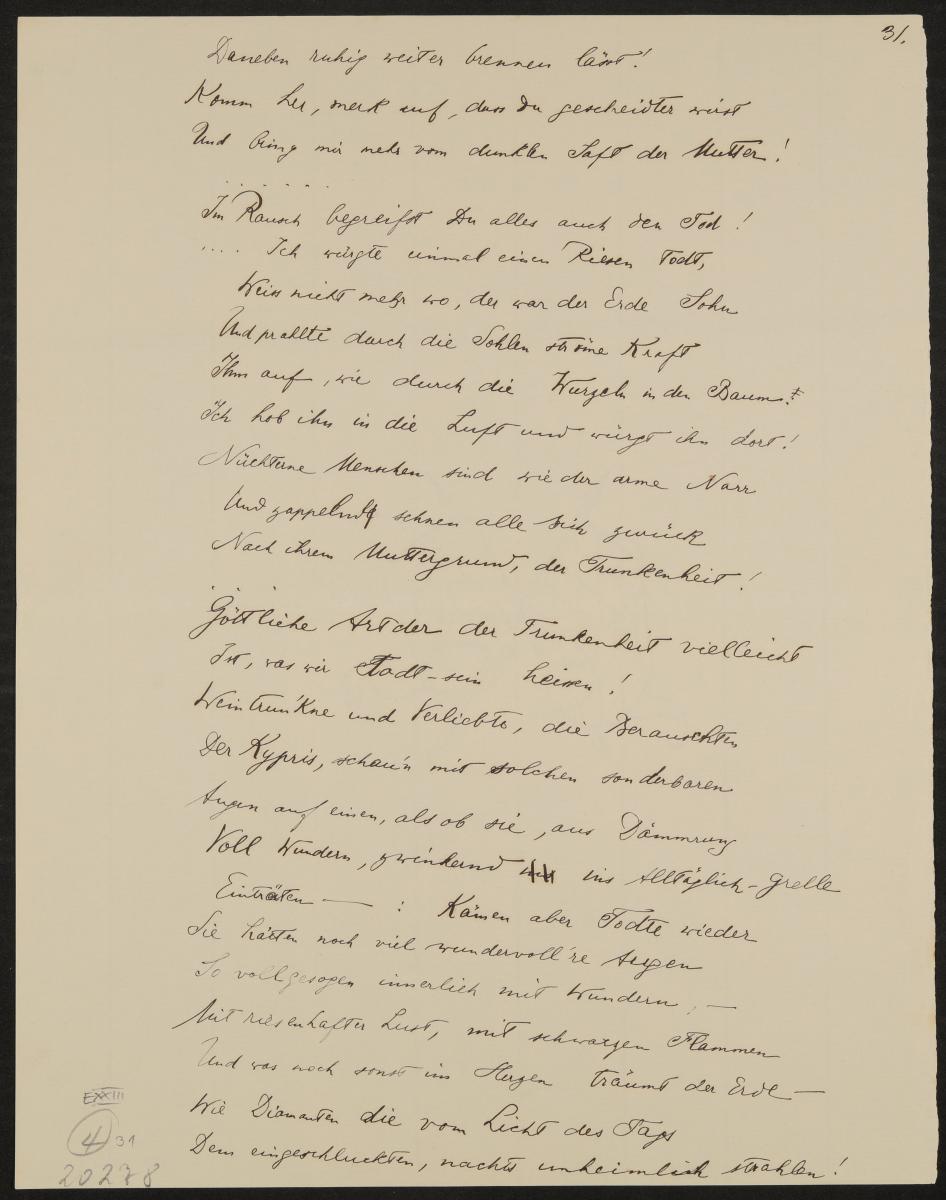 31.
Daneben ruhig weiter brennen lässt!
Komm her, merk auf, dass du gescheidter wirst
Und bring mir mehr vom dunklen Saft der Mutter!
. . . . . .
Im Rausch begreifst Du alles auch den Tod!
.... Ich würgte einmal einen Riesen todt,
Weiss nicht mehr wo, der war der Erde Sohn
Und prallte durch die Sohlen ströme Kraft
Ihm auf, wie durch die Wurzeln in den Baum!
Ich hob ihn in die Luft und würgt ihn dort!
Nüchterne Menschen sind wie der arme Narr
Und zappelnd sehnen alle sich zurück
Nach ihrem Muttergrund, der Trunkenheit!
. .
Göttliche Art der der Trunkenheit vielleicht
Ist, was wir Todt-sein heissen!
Weintrunkne und Verliebte, die Berauschten
Der Kypris, schau'n mit solchen sonderbaren
Augen auf einen, als ob sie, aus Dämmrung
Voll Wundern, zwinkernd ins Alltäglich-grelle
Einträten — : Kämen aber Todte wieder
Sie hätten noch viel wundervoll're Augen
So vollgesogen innerlich mit Wundern, —
Mit riesenhafter Lust, mit schwarzen Flammen
Und was noch sonst im Herzen träumt der Erde —
Wie Diamanten die vom Licht des Tags
Dem eingeschluckten, nachts unheimlich strahlen!
EXXIII
4 31
20278